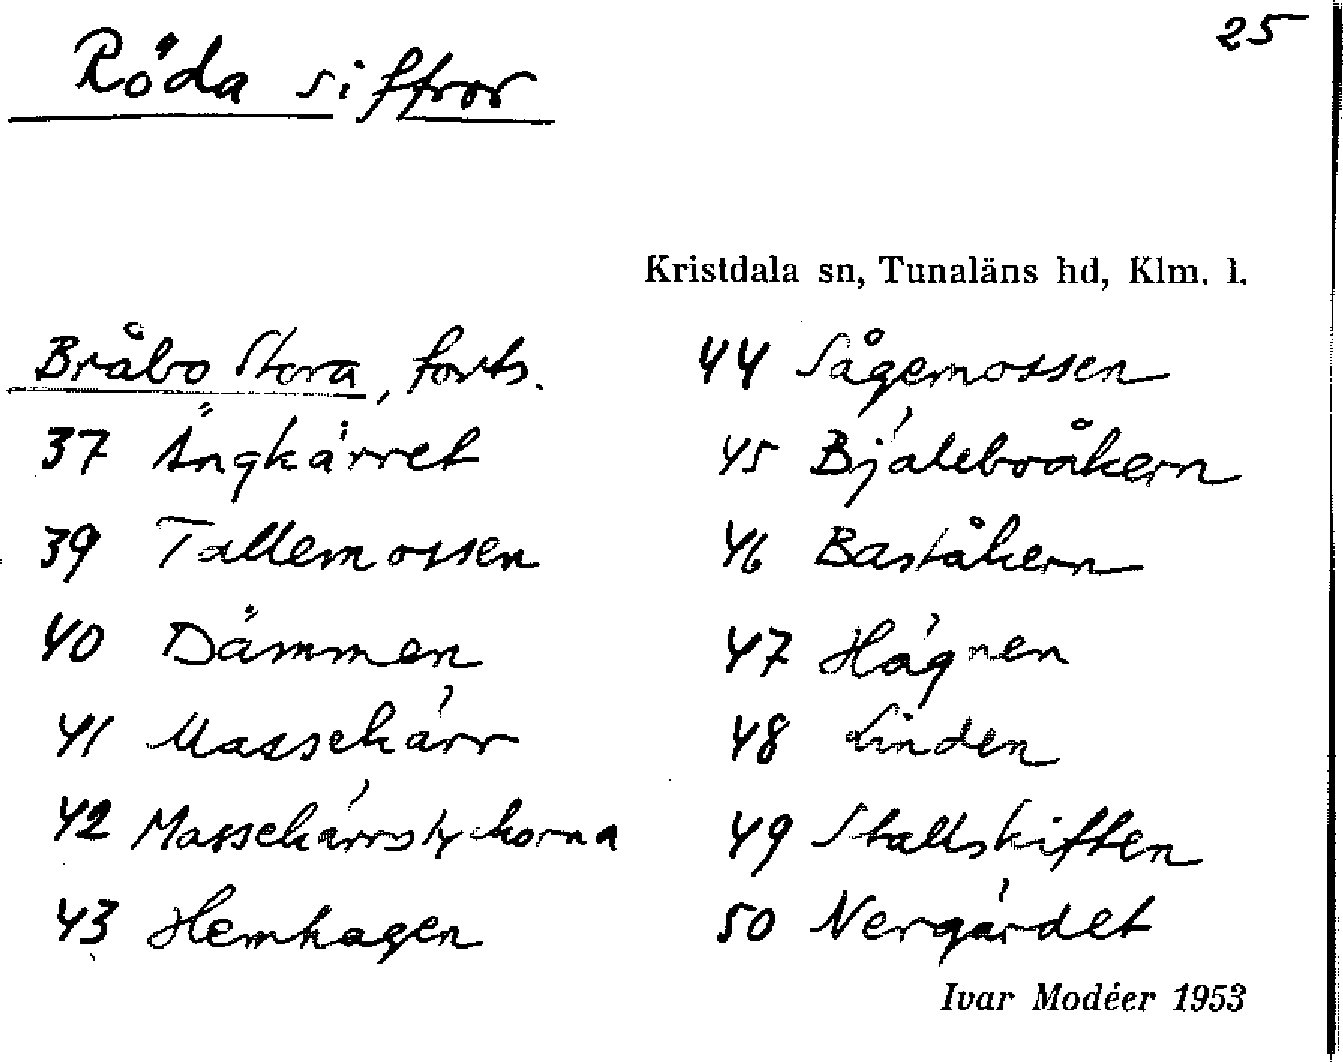 25
Röda siffror
Kristdala sn, Tunaläns hd, Klm. l.
Bråbo Stora, forts.
37 Ängkärret
39 Tallemossen
40 Dämmen
41 Massekärr
42 Massekärrstyckorna
43 Hemhagen
44 Sågemossen
45 Bjälebroåkern
46 Baståkern
47 Hägnen
48 Linden
49 Stallskiften
50 Nergärdet
Ivar Modéer 1953